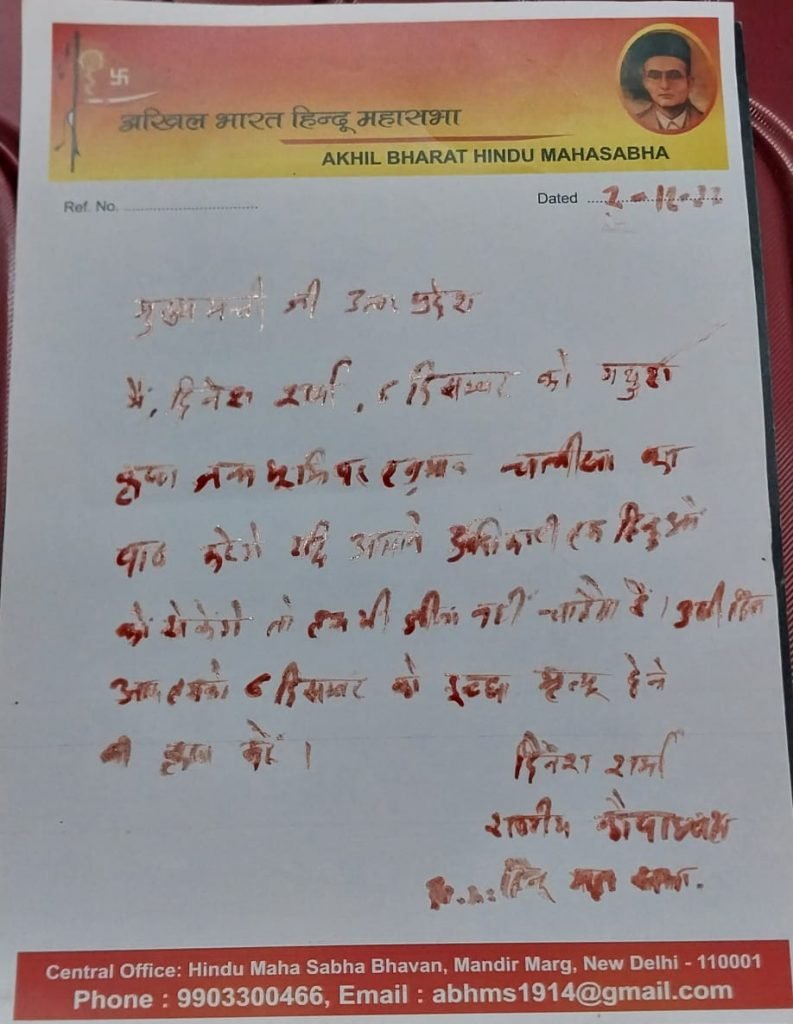 卐
अखिल भारत हिन्दू महासभा
AKHIL BHARAT HINDU MAHASABHA
Ref. No. ..................................
Dated 2-12-22
मुख्यमन्त्री जी उत्तर प्रदेश
मैं, दिनेश शर्मा, ६ दिसम्बर को मथुरा
कृष्ण जन्म भूमि पर हनुमान चालीसा का
पाठ करेगे यदि आपके अधिकारी हम हिन्दुओ
को रोकेगे तो हम भी जीना नहीं चाहते है। उसी दिन
आप हमको ६ दिसम्बर को इच्छा मृत्यू देने
की कृपा करें।
दिनेश शर्मा
राष्ट्रीय कोषाध्यक्ष
हिन्दू महा सभा.
Central Office: Hindu Maha Sabha Bhavan, Mandir Marg, New Delhi - 110001
Phone : 9903300466, Email : abhms1914@gmail.com